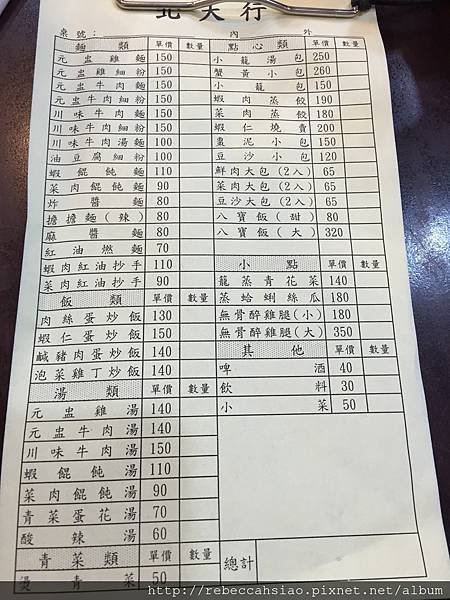 北大行
桌號： 內 外
麵類 單價 數量
元盅雞麵 150
元盅雞細粉 150
元盅牛肉麵 150
元盅牛肉細粉 150
川味牛肉麵 150
川味牛肉細粉 150
川味牛肉湯麵 100
油豆腐細粉 100
蝦餛飩麵 110
菜肉餛飩麵 90
炸醬麵 80
擔擔麵(辣) 80
麻醬麵 80
紅油燃麵 70
蝦肉紅油抄手 110
菜肉紅油抄手 90
飯類 單價 數量
肉絲蛋炒飯 130
蝦仁蛋炒飯 150
鹹豬肉蛋炒飯 140
泡菜雞丁炒飯 140
湯類 單價 數量
元盅雞湯 140
元盅牛肉湯 140
川味牛肉湯 150
蝦餛飩湯 110
菜肉餛飩湯 90
青菜蛋花湯 70
酸辣湯 60
青菜類 單價 數量
燙青菜 50
點心類 單價 數量
小籠湯包 250
蟹黃小包 260
小籠包 150
蝦肉蒸餃 190
菜肉蒸餃 180
蝦仁燒賣 200
棗泥小包 150
豆沙小包 120
鮮肉大包(2入) 65
菜肉大包(2入) 65
豆沙大包(2入) 65
八寶飯(甜) 80
八寶飯(大) 320
小點 單價 數量
籠蒸青花菜 140
蒸蛤蜊絲瓜 180
無骨醉雞腿(小) 180
無骨醉雞腿(大) 350
其他 單價 數量
啤酒 40
飲料 30
小菜 50
總計
http://rebeccahsiao.pixnet.net/album